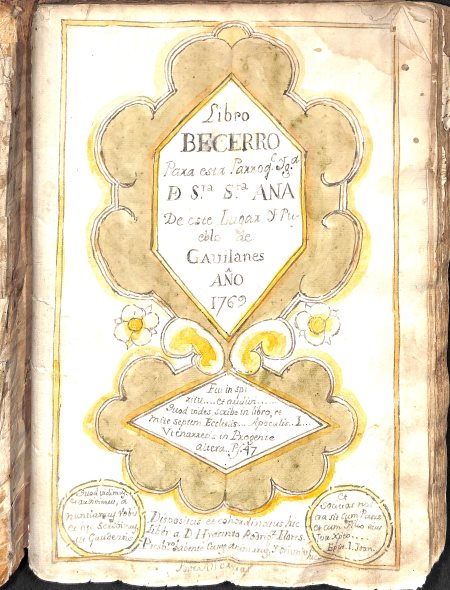 Libro
BECERRO
Para esta Parroq.ˡ Yg.ᵃ
D S.ᵗᵃ S.ʳᵃ ANA
De este Lugar Y Pu
eblo de
GAVilanes
AÑO
1769
Fui in spi
ritu.... et audivi......
Quod vides, scribe in libro, et
mite septem Ecclesiis... Apocalis.. 1...
Ut enarretis in Progenie
altera.. Ps. 47
Quod vidimus,
et audivimus, a
nuntiamus vobis
et
ut Gaudeatis
Dispositus et cohordinatus hic
liber a D. Hyacinto
Et
Societas nos
tra sit Cum Patre
et cum Filio eius
Jsu Xpto....
Epis. 1. Joan.